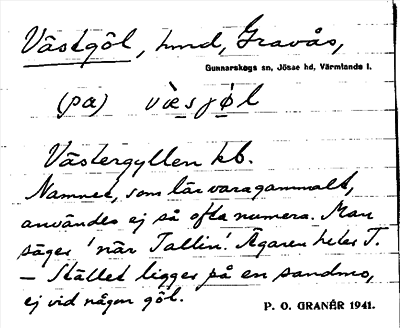 Västgöl, hmd, Gravås,
Gunnarskogs sn, Jösse hd, Värmlands l.
(pa) væsjøl
Västergyllen kb.
Namnet, som lär vara gammalt,
användes ej så ofta numera. Man
säger 'när Tallin'. Ägaren heter T.
— Stället ligger på en sandmo,
ej vid någon göl.
P. O. GRANÉR 1941.